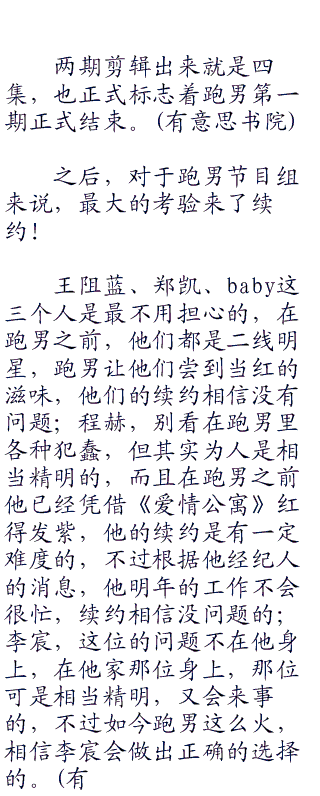 两期剪辑出来就是四
集，也正式标志着跑男第一
期正式结束。(有意思书院)
之后，对于跑男节目组
来说，最大的考验来了续
约！
王阻蓝、郑凯、baby这
三个人是最不用担心的，在
跑男之前，他们都是二线明
星，跑男让他们尝到当红的
滋味，他们的续约相信没有
问题；程赫，别看在跑男里
各种犯蠢，但其实为人是相
当精明的，而且在跑男之前
他已经凭借《爱情公寓》红
得发紫，他的续约是有一定
难度的，不过根据他经纪人
的消息，他明年的工作不会
很忙，续约相信没问题的；
李宸，这位的问题不在他身
上，在他家那位身上，那位
可是相当精明，又会来事
的，不过如今跑男这么火，
相信李宸会做出正确的选择
的。(有